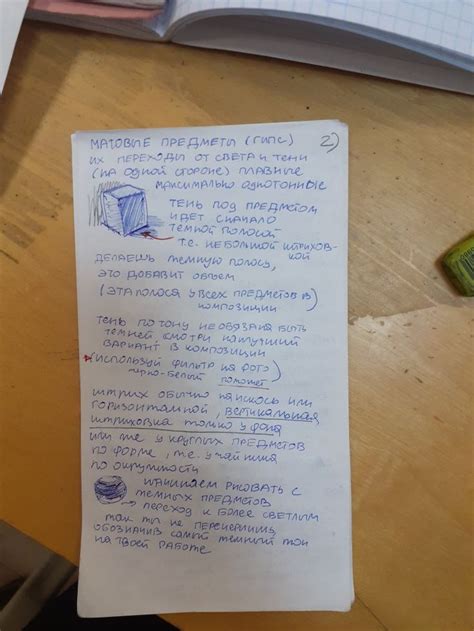 2)
МАТОВЫЕ ПРЕДМЕТЫ (ГИПС)
ИХ ПЕРЕХОДЫ ОТ СВЕТА И ТЕНИ
(НА ОДНОЙ СТОРОНЕ) ПЛАВНЫЕ
МАКСИМАЛЬНО ОДНОТОННЫЕ
ТЕНЬ ПОД ПРЕДМЕТОМ
ИДЕТ СНАЧАЛО
ТЕМНОЙ ПОЛОСОЙ
Т.Е. НЕБОЛЬШОЙ ШТРИХОВ-
КОЙ
ДЕЛАЕШЬ ТЕМНУЮ ПОЛОСУ,
ЭТО ДОБАВИТ ОБЪЕМ
(ЭТА ПОЛОСА У ВСЕХ ПРЕДМЕТОВ В
КОМПОЗИЦИИ)
ТЕНЬ ПО ТОНУ НЕ ОБЯЗАНА БЫТЬ
ТЕМНЕЙ СМОТРИ НАИЛУЧШИЙ
ВАРИАНТ В КОМПОЗИЦИИ
(ИСПОЛЬЗУЙ ФИЛЬТР НА ФОТО
ЧЕРНО-БЕЛЫЙ ПОМОЖЕТ)
ШТРИХ ОБЫЧНО НАИСКОСЬ ИЛИ
ГОРИЗОНТАЛЬНОЙ, ВЕРТИКАЛЬНАЯ
ШТРИХОВКА ТОЛЬКО У ФОНА
ИЛИ ЖЕ У КРУГЛЫХ ПРЕДМЕТОВ
ПО ФОРМЕ, Т.Е. У ЧАЙНИКА
ПО ОКРУЖНОСТИ
НАЧИНАЕМ РИСОВАТЬ С
ТЕМНЫХ ПРЕДМЕТОВ
→ ПЕРЕХОД К БОЛЕЕ СВЕТЛЫМ
ТАК ТЫ НЕ ПЕРЕЧЕРНИШЬ,
ОБОЗНАЧИВ САМЫЙ ТЕМНЫЙ ТОН
НА ТВОЕЙ РАБОТЕ